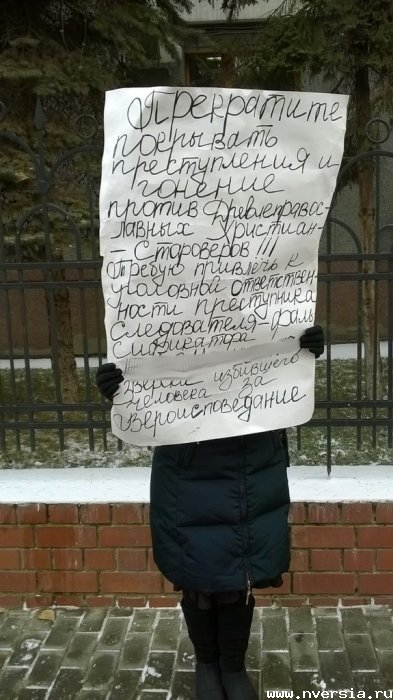 Прекратите
покрывать
преступления и
гонение
против Древлеправос-
лавных Христиан-
- Староверов !!!
Требую привлечь к
уголовной ответствен-
ности преступника
следователя - фаль
сификатора
зверски избившего
человека за
вероисповедание
www.nversia.ru